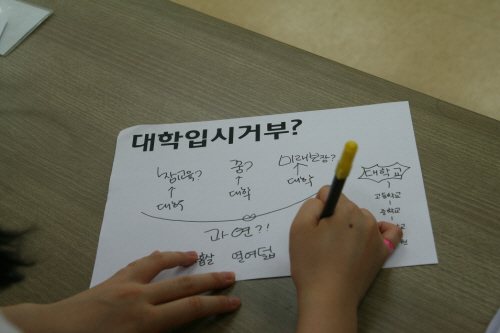 대학입시거부?
참교육? 꿈? 미래보장? 대학교
↑ ↑ ↑ 고등학교
대학 대학 대학 중학교
과연?!
열여덟